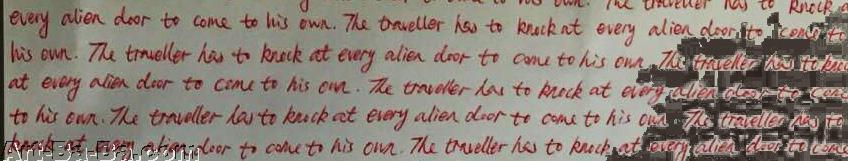 to his own. The traveller has to knock
every alien door to come to his own. The traveller has to knock at every alien door to come to
his own. The traveller has to knock at every alien door to come to his own The traveller has to knoc
at every alien door to come to his own. The traveller has to knock at every alien door to come
to his own. The traveller has to knock at every alien door to come to his own The traveller has to
knock at every alien door to come to his own. The traveller has to knock at every alien door to come